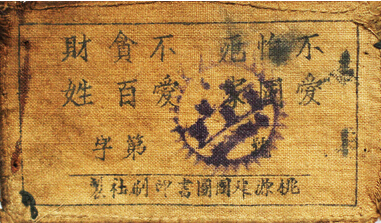 不怕死 不貪財
愛國家 愛百姓
字第 號
桃源建國圖書印刷社製